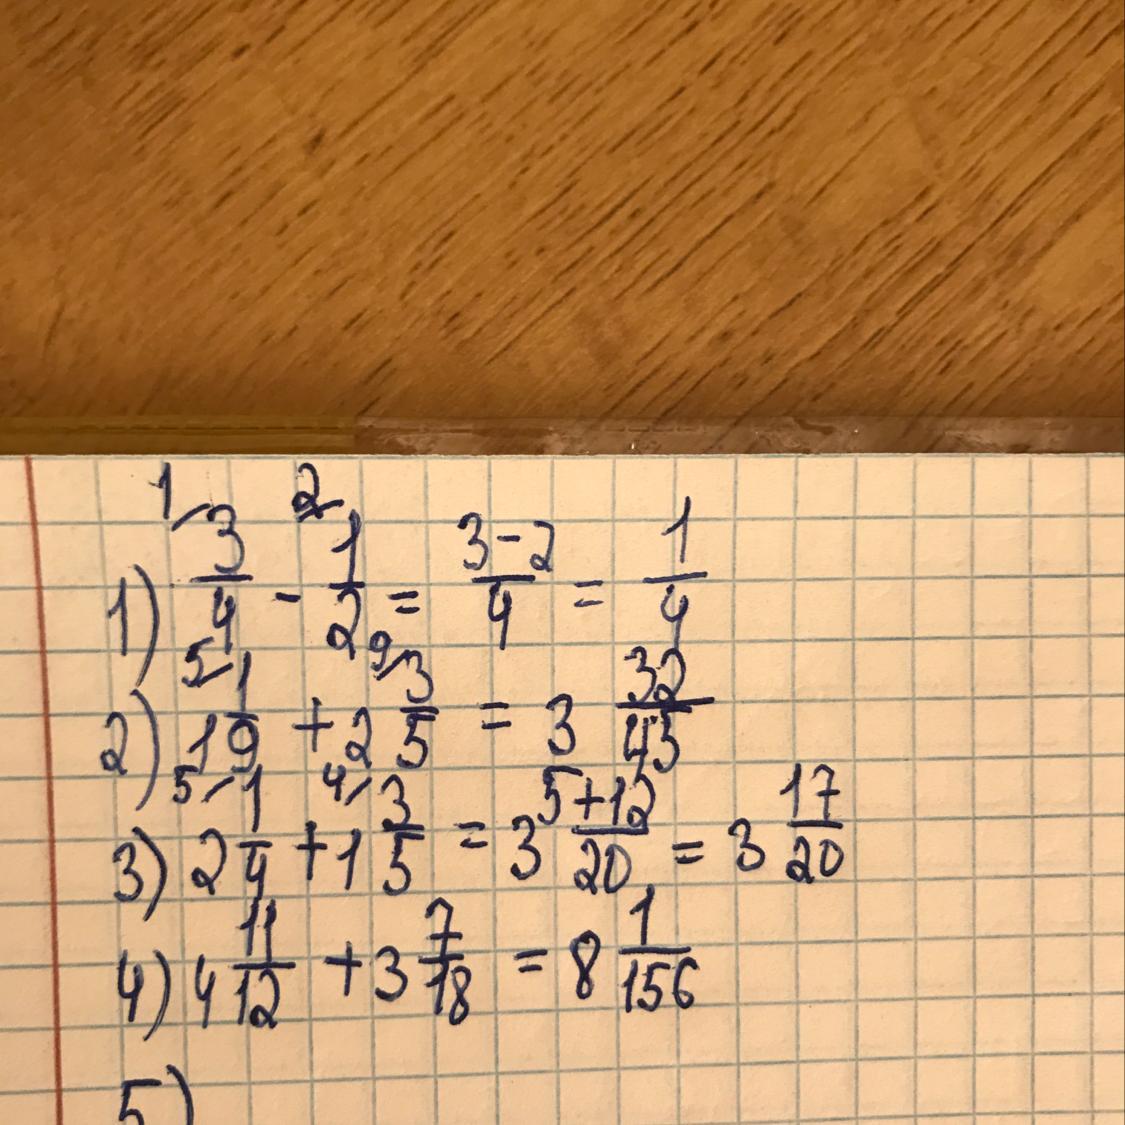 1) ¹⁄3/4 - ²⁄1/2 = (3-2)/4 = 1/4
2) ⁵⁄1 1/9 + ⁹⁄2 3/5 = 3 32/45
3) ⁵⁄2 1/4 + ⁴⁄1 3/5 = 3 (5+12)/20 = 3 17/20
4) 4 11/12 + 3 7/18 = 8 1/156
5)